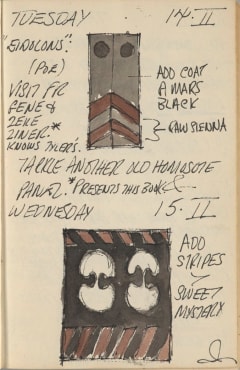 TUESDAY 14. II
"EIDOLONS":
(POE)
VISIT FR
GENE &
ZEKE
ZINER.*
KNOWS TYLER'S.
ADD COAT
A MARS
BLACK
RAW SIENNA
TACKLE ANOTHER OLD HOMOSOTE
PANEL. *PRESENTS THIS BOOK
WEDNESDAY 15. II
ADD
STRIPES
SWEET
MYSTERY